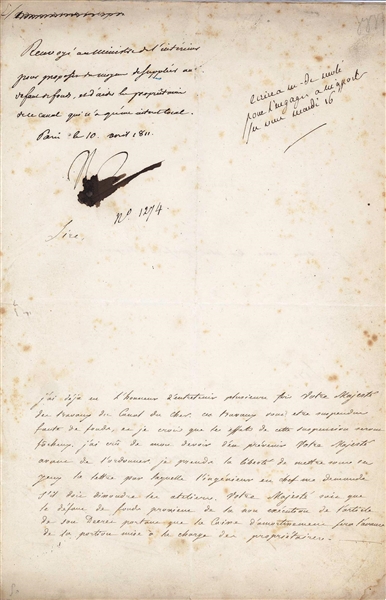 Renvoyé au Ministre de l'intérieur
pour proposer du moyen de suppléer au
defaut de fonds, et d'aider le propriétaire
de ce canal qui n'a qu'un intérêt local.
Paris le 10 avril 1811.
N
écrire a m. de molé
pour l'engager a
mardi 16
N° 1274.
Sire
j'ai déjà eu l'honneur d'entretenir plusieurs fois Votre Majesté
des travaux du Canal du Cher. ces travaux vont être suspendus
faute de fonds, et je crois que les effets de cette suspension seront
fâcheux. j'ai crû de mon devoir d'en prévenir Votre Majesté
avant de l'ordonner. je prends la liberté de mettre sous ses
yeux la lettre par laquelle l'ingénieur en chef me demande
s'il doit dissoudre les ateliers. Votre Majesté voit que
le défaut de fonds provient de la non exécution de l'article
de son Décret portant que la Caisse d'amortissement fera l'avance
de la portion mise à la charge des propriétaires.